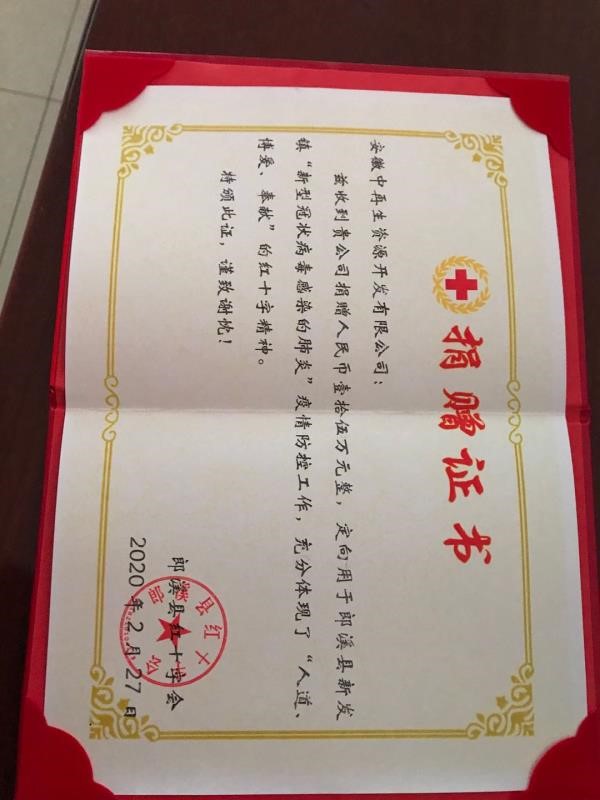 捐赠证书
安徽中再生资源开发有限公司：
兹收到贵公司捐赠人民币壹拾伍万元整，定向用于郎溪县新发
镇“新型冠状病毒感染的肺炎”疫情防控工作，充分体现了“人道、
博爱、奉献”的红十字精神。
特颁此证，谨致谢忱！
郎溪县红十字会
2020年2月27日